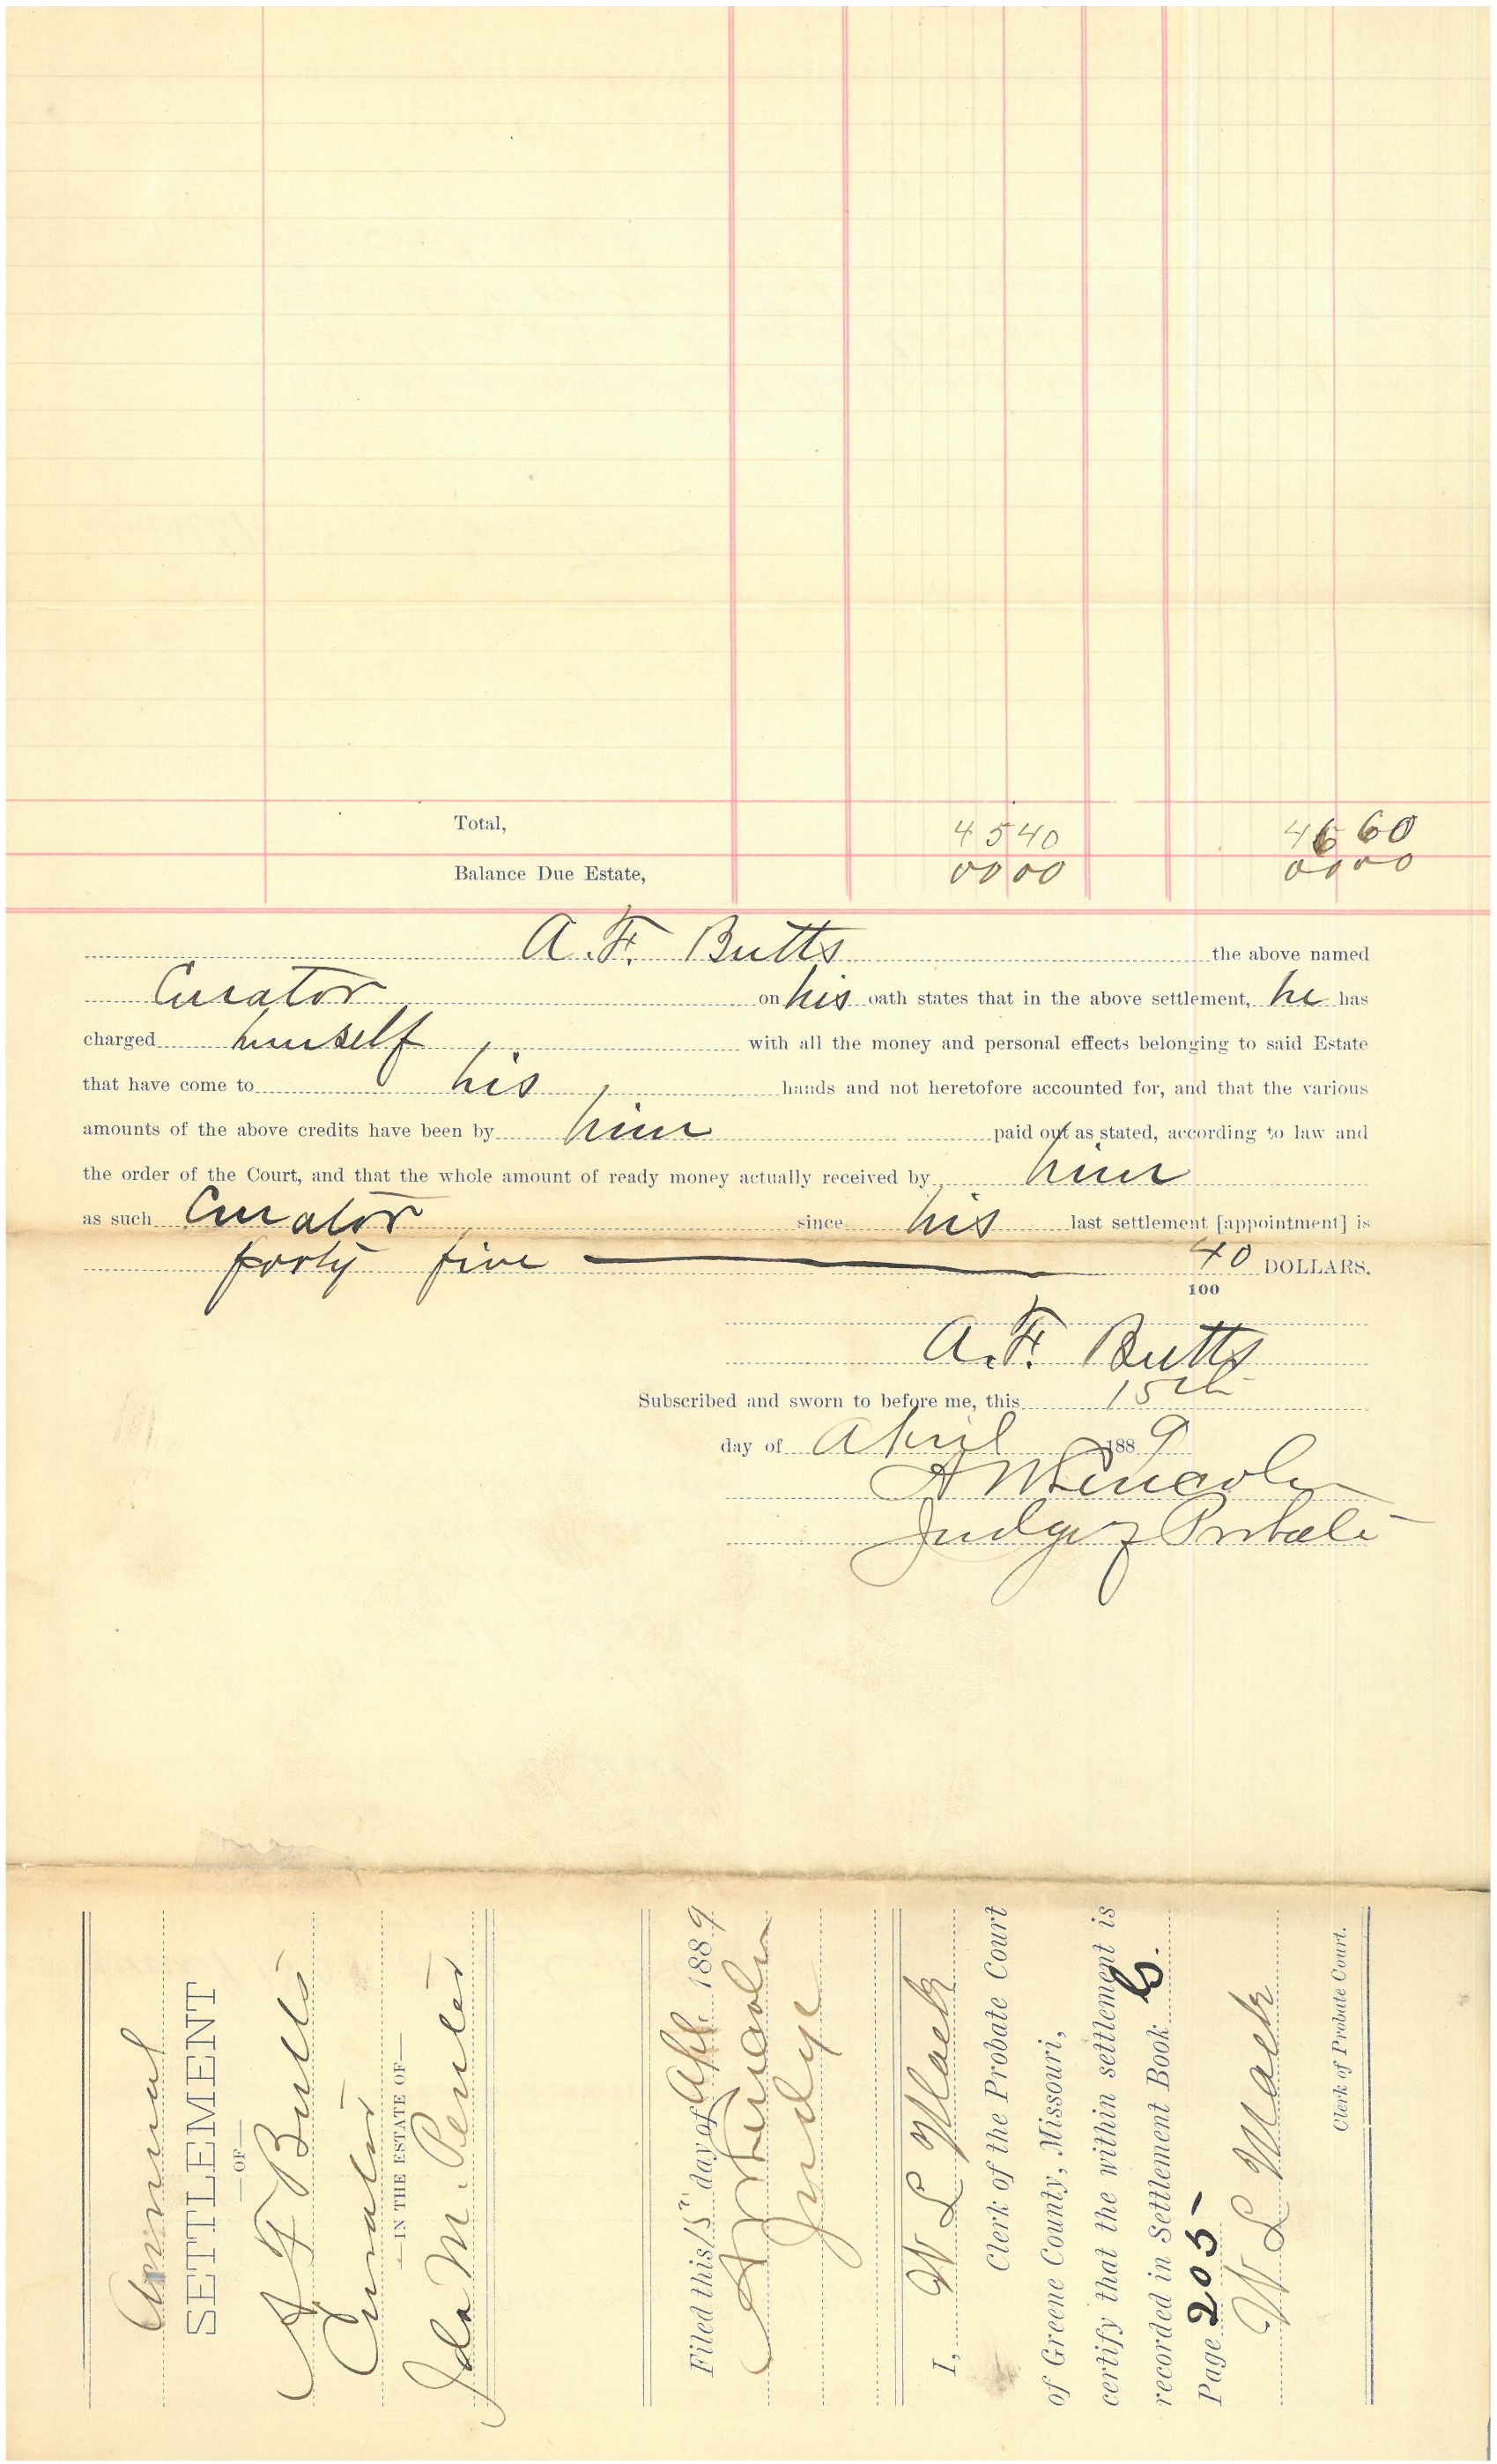 Total, 45 40 46 60
Balance Due Estate, 00 00 00 00
A. F. Butts the above named
Curator on his oath states that in the above settlement, he has
charged himself with all the money and personal effects belonging to said Estate
that have come to his hands and not heretofore accounted for, and that the various
amounts of the above credits have been by him paid out as stated, according to law and
the order of the Court, and that the whole amount of ready money actually received by him
as such Curator since his last settlement [appointment] is
forty five 40 DOLLARS.
100
A. F. Butts
Subscribed and sworn to before me, this 15th
day of April 1889
A W Lincoln
Judge of Probate
Annual
SETTLEMENT
—OF—
A F Butts
Curator
—IN THE ESTATE OF—
Ida M.
Filed this 15th day of Apl. 1889
A W Lincoln
Judge
I, W L Mack
Clerk of the Probate Court
of Greene County, Missouri,
certify that the within settlement is
recorded in Settlement Book
Page 205-
W L Mack
Clerk of Probate Court.